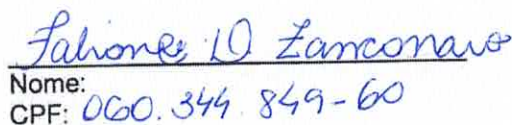 Fabione D Zanconaro
Nome:
CPF: 060.344.849-60